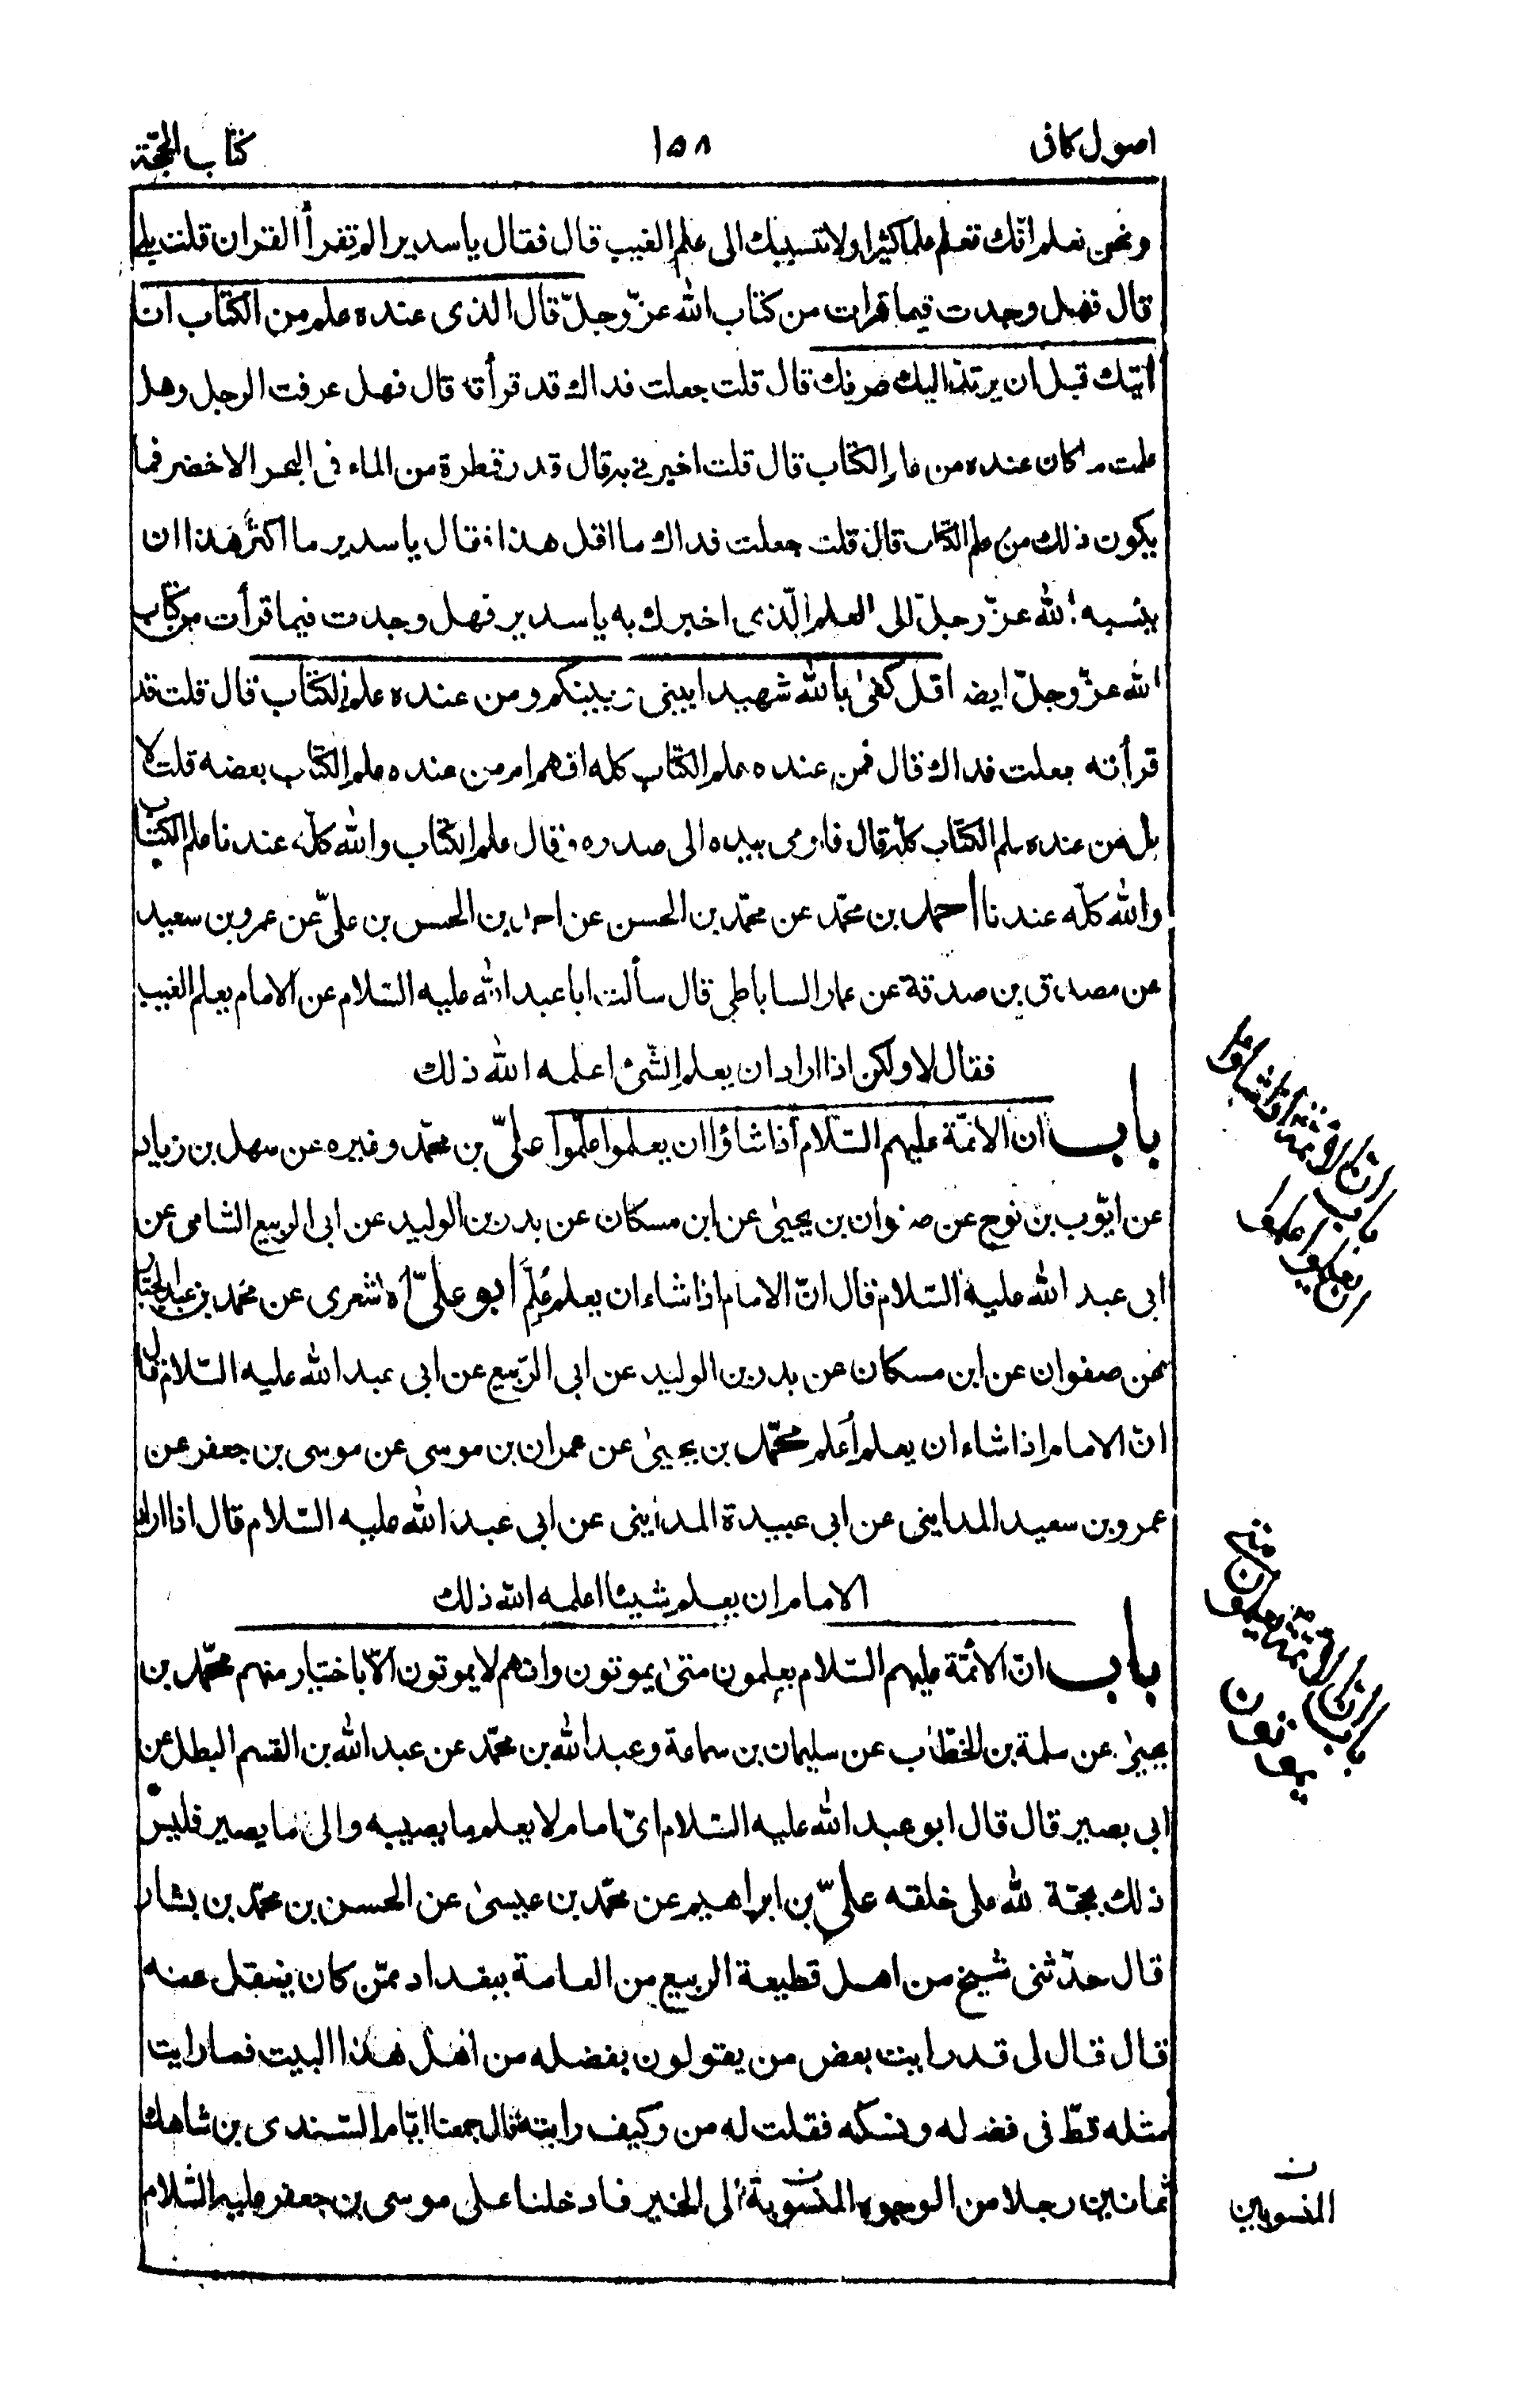 اصول كافى ١٥٨ كتاب الحجّة
ونحن نعلم انّك تعلم علما كثيرا ولا ننسبك الى علم الغيب قال فقال يا سدير الم تقرأ القران قلت بلى
قال فهل وجدت فيما قرات من كتاب الله عزّ وجلّ قال الذى عنده علم من الكتاب انا
اتيك قبل ان يرتدّ اليك طرفك قال قلت جعلت فداك قد قرأته قال فهل عرفت الرجل وهل
علمت ما كان عنده من علم الكتاب قال قلت اخبرنى به قال قدر قطرة من الماء فى البحر الاخضر فما
يكون ذلك من علم الكتاب قال قلت جعلت فداك ما اقل هذا فقال يا سدير ما اكثر هذا ان
ينسبه الله عزّ وجلّ الى العلم الّذى اخبرك به يا سدير فهل وجدت فيما قرأت من كتاب
الله عزّ وجلّ ايضا قل كفىٰ بالله شهيدا بينى وبينكم ومن عنده علم الكتاب قال قلت قد
قرأته جعلت فداك قال فمن عنده علم الكتاب كله افهم ام من عنده علم الكتاب بعضه قلت لا
بل من عنده علم الكتاب كلّه قال فاومى بيده الى صدره وقال علم الكتاب والله كلّه عندنا علم الكتاب
والله كلّه عندنا احمد بن محمّد عن محمّد بن الحسن عن احمد بن الحسن بن علىّ عن عمرو بن سعيد
عن مصدق بن صدقة عن عمار الساباطى قال سألت ابا عبد الله عليه السّلام عن الامام يعلم الغيب
فقال لا ولكن اذا اراد ان يعلم الشّئ اعلمه الله ذلك
باب ان الائمّة عليهم السّلام اذا شاؤا ان يعلموا علّموا علىّ بن محمّد وغيره عن سهل بن زياد
عن ايّوب بن نوح عن صفوان بن يحيىٰ عن ابن مسكان عن بدر بن الوليد عن ابى الربيع الشامى عن
ابى عبد الله عليه السّلام قال انّ الامام اذا شاء ان يعلم عُلِّمَ ابو علىّ الاشعرى عن محمّد بن عبد الجبّار
عن صفوان عن ابن مسكان عن بدر بن الوليد عن ابى الرّبيع عن ابى عبد الله عليه السّلام قال
انّ الامام اذا شاء ان يعلم أعلم محمّد بن يحيىٰ عن عمران بن موسى عن موسى بن جعفر عن
عمرو بن سعيد المداينى عن ابى عبيدة المداينى عن ابى عبد الله عليه السّلام قال اذا اراد
الامام ان يعلم شيئا اعلمه الله ذلك
باب انّ الأئمّة عليهم السّلام يعلمون متىٰ يموتون وانهم لا يموتون الّا باختيار منهم محمّد بن
يحيىٰ عن سلمة بن الخطّاب عن سليمان بن سماعة وعبد الله بن محمّد عن عبد الله بن القسم البطل عن
ابى بصير قال قال ابو عبد الله عليه السّلام اىّ امام لا يعلم ما يصيبه والى ما يصير فليس
ذلك بحجّة لله على خلقه علىّ بن ابراهيم عن محمّد بن عيسىٰ عن الحسن بن محمّد بن بشار
قال حدّثنى شيخ من اهل قطيعة الربيع من العامة ببغداد ممّن كان ينقل عنه
قال قال لى قد رايت بعض من يقولون بفضله من اهل هذا البيت فما رايت
مثله قطّ فى فضله ونسكه فقلت له من وكيف رايته قال جمعنا ايّام السّندى بن شاهك
ثمانين رجلا من الوجوه المنسوبة الى الخير فادخلنا على موسى بن جعفر عليه السّلام
باب ان الائمّة اذا شاؤا
ان يعلموا علموا
باب ان الائمّة يعلمون متى
يموتون
ن
المنسوبين